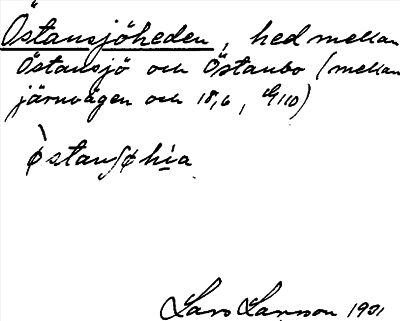 Östansjöheden, hed mellan
Östansjö och Östanbo (mellan
järnvägen och 18,6, 110)
Lars Larsson 1901